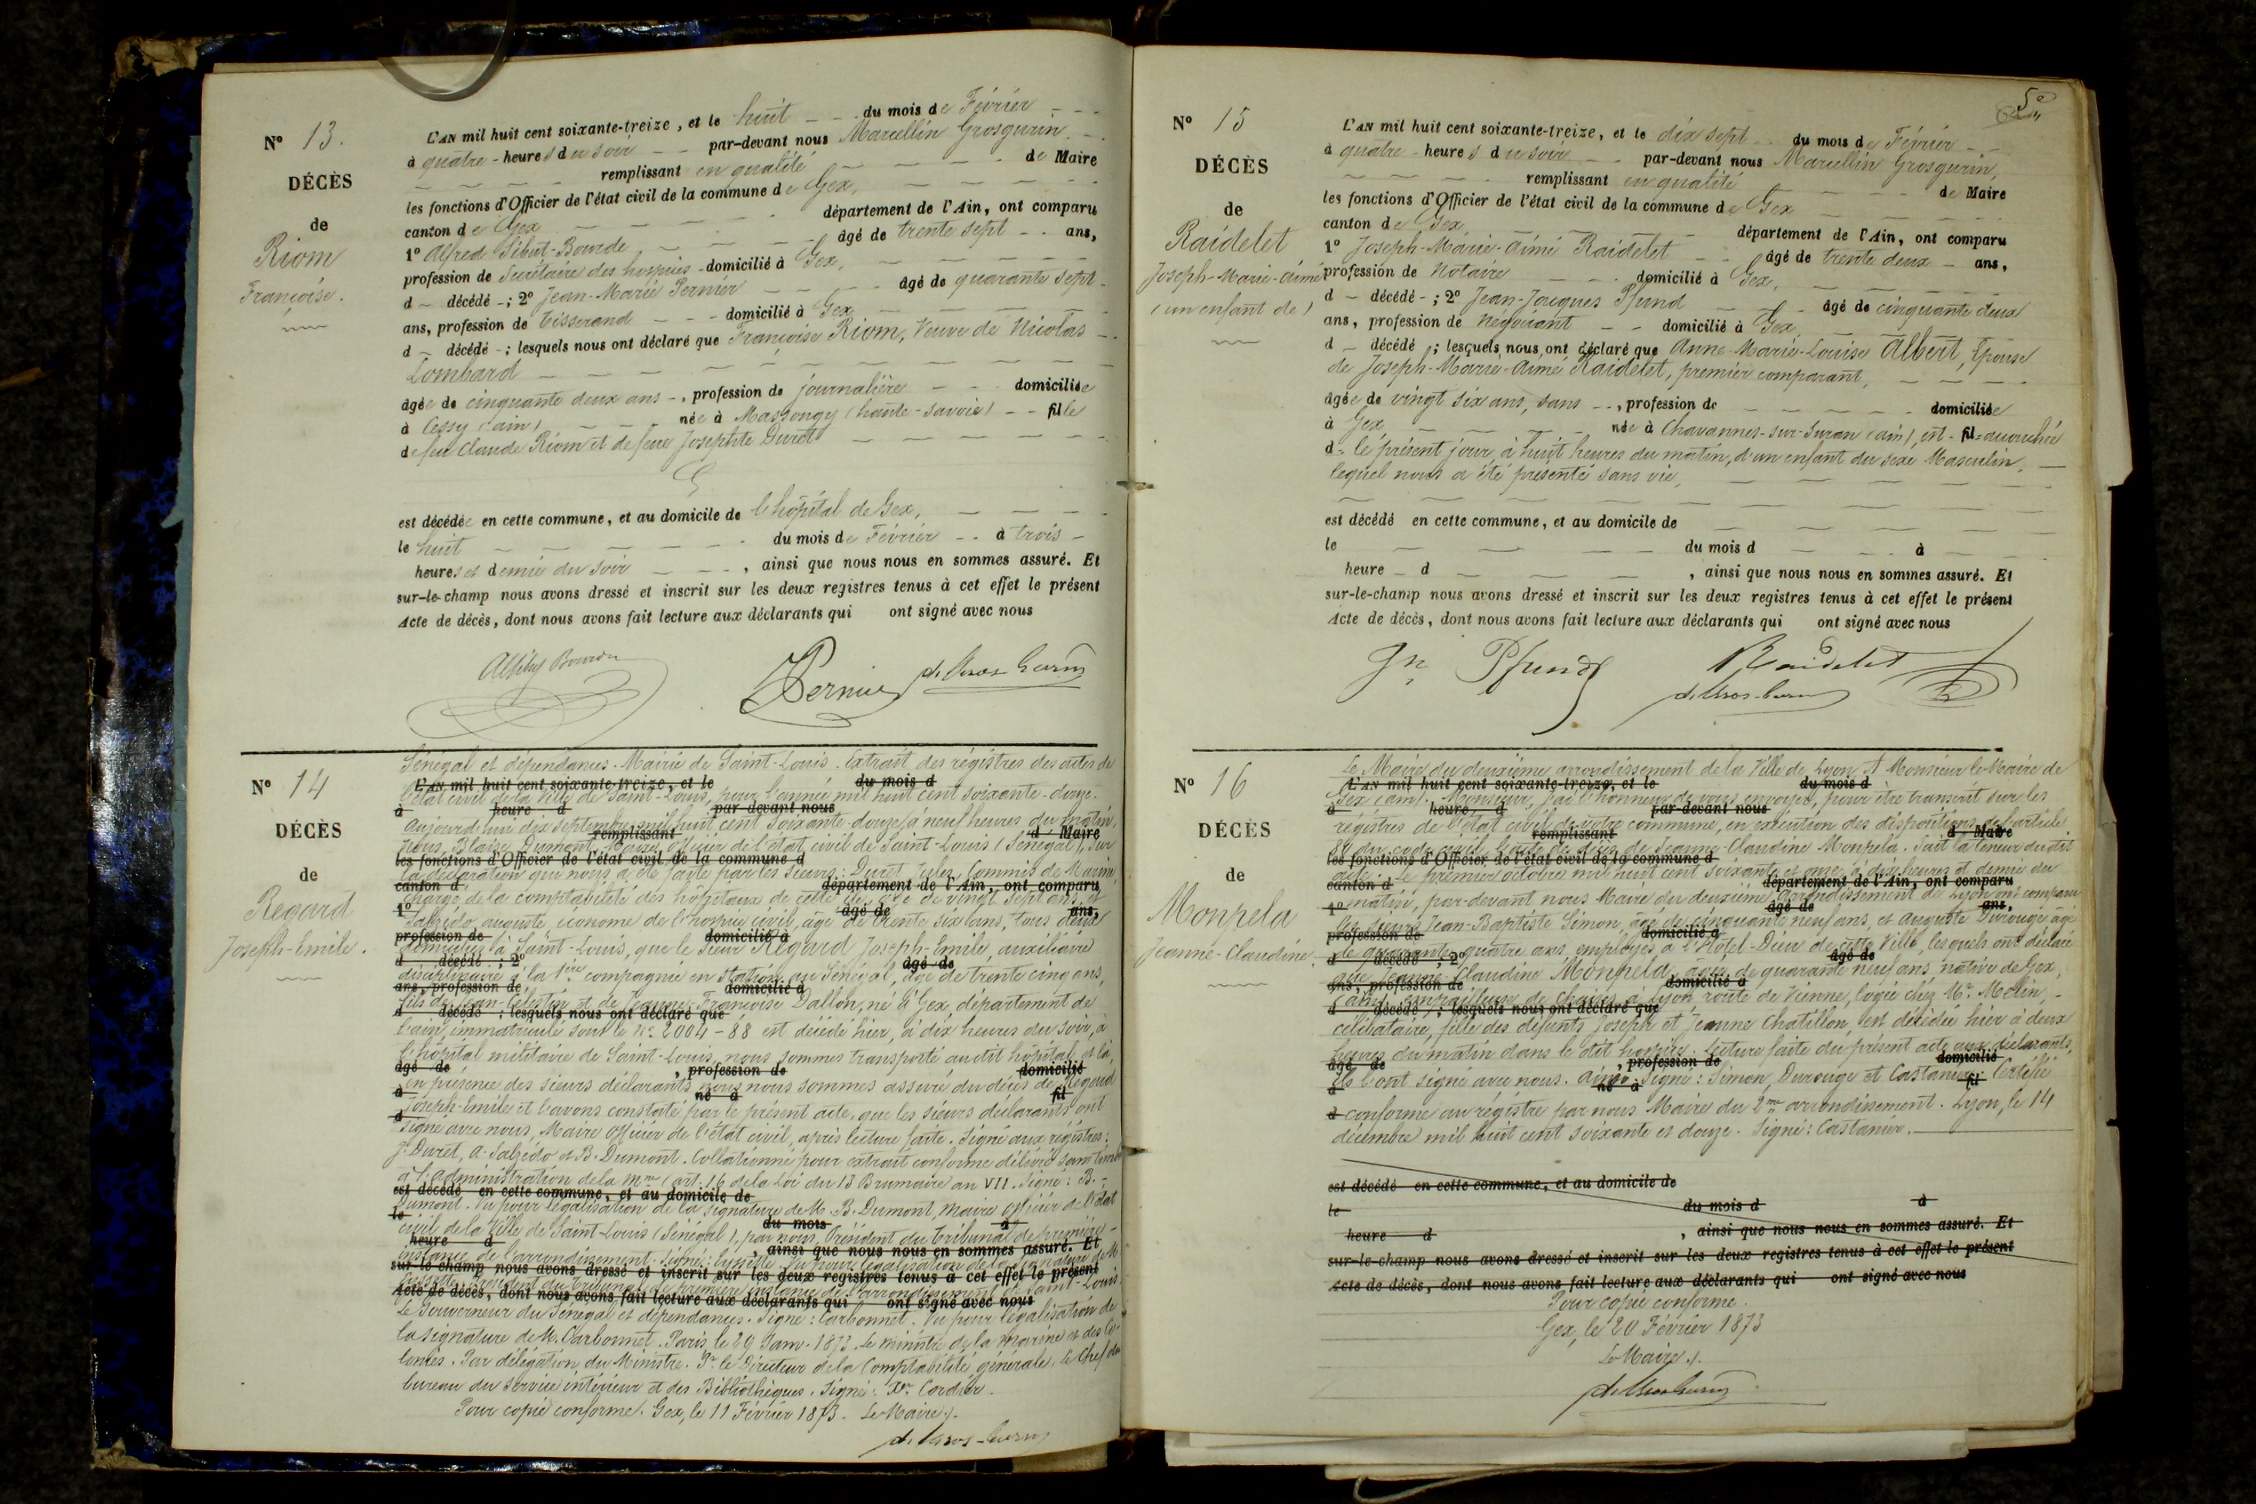 Nº 13.
DÉCÈS
de
Riom
Françoise.
L'AN mil huit cent soixante-treize, et le huit du mois de Février
à quatre heures du soir par-devant nous Marcellin Grosgurin
remplissant en qualité de Maire
les fonctions d'Officier de l'état civil de la commune de Gex,
canton de Gex département de l'Ain, ont comparu
1º Alfred Sébut-Bourde âgé de trente sept ans,
profession de Secrétaire des hospices domicilié à Gex,
d décédé ; 2º Jean-Marie Pernier âgé de quarante sept
ans, profession de Tisserand domicilié à Gex
d décédé ; lesquels nous ont déclaré que Françoise Riom, Veuve de Nicolas
Lombard
âgée de cinquante deux ans, profession de journalière domiciliée
à Cessy (ain) née à Massongy (haute-savoie) fille
de feu Claude Riom et de feue Josephte Duret
est décédée en cette commune, et au domicile de l'hôpital de Gex,
le huit du mois de Février à trois
heures et demie du soir, ainsi que nous nous en sommes assuré. Et
sur-le-champ nous avons dressé et inscrit sur les deux registres tenus à cet effet le présent
Acte de décès, dont nous avons fait lecture aux déclarants qui ont signé avec nous
Pernier
Nº 14
DÉCÈS
de
Regard
Joseph-Emile.
Sénégal et dépendances. Mairie de Saint-Louis. Extrait des régistres des actes de
l'état civil de la Ville de Saint-Louis, pour l'année mil huit cent soixante-douze.
Aujourd'hui dix Septembre mil huit cent soixante douze à neuf heures du matin,
Nous, Blaise Dumont, Maire, officier de l'état civil de Saint-Louis (Sénégal), Sur
la déclaration que nous a été faite par les Sieurs : Duret Jules, Commis de Marine
chargé de la comptabilité des hôpitaux de cette ville âgé de vingt sept ans, et
Salzédo, auguste, économe de l'hospice civil, âgé de trente six ans, tous deux
domiciliés à Saint-Louis, que le Sieur Regard Joseph-Emile, auxiliaire
disciplinaire à la 1ère compagnie en station au Sénégal, âgé de trente cinq ans,
fils de Jean-Célestin et de Jeanne-Françoise Dallon, né à Gex, département de
l'ain, immatriculé sous le Nº 2004-88 est décédé hier, à dix heures du soir, à
l'hôpital militaire de Saint-Louis, nous sommes transporté au dit hôpital et là,
en présence des sieurs déclarants nous nous sommes assuré du décès de Regard
Joseph-Emile et l'avons constaté par le présent acte, que les sieurs déclarants ont
signé avec nous, Maire officier de l'état civil, après lecture faite. Signé aux régistres :
J. Duret, A. Salzédo et B. Dumont. Collationné pour extrait conforme délivré sans timbre
à l'administration de la Mne (art. 16 de la Loi du 13 Brumaire an VII. Signé : B.
Dumont. Vu pour légalisation de la signature de M. B. Dumont, Maire officier de l'état
civil de la Ville de Saint-Louis (Sénégal), par nous, Président du Tribunal de première
instance de l'arrondissement.
Le Gouverneur du Sénégal et dépendances. Signé : Carbonnet. Vu pour légalisation de
la signature de M. Carbonnet. Paris, le 29 Janv. 1873. Le ministre de la Marine et des Co-
lonies. Par délégation du Ministre. Pr. le Directeur de la Comptabilité générale. Le Chef du
bureau du service intérieur et des Bibliothèques. Signé : Xr. Cordier.
Pour copie conforme. Gex, le 11 Février 1873. Le Maire.
5e
Nº 15
DÉCÈS
de
Raidelet
Joseph-Marie-Aimé
(un enfant de)
L'AN mil huit cent soixante-treize, et le dix sept du mois de Février
à quatre heures du soir par-devant nous Marcellin Grosgurin,
remplissant en qualité de Maire
les fonctions d'Officier de l'état civil de la commune de Gex
canton de Gex, département de l'Ain, ont comparu
1º Joseph-Marie-Aimé Raidelet âgé de trente deux ans,
profession de Notaire domicilié à Gex,
d décédé ; 2º Jean-Jacques Pfund âgé de cinquante deux
ans, profession de Négociant domicilié à Gex
d décédé ; lesquels nous ont déclaré que Anne-Marie-Louise Albert, Epouse
de Joseph-Marie-Aimé Raidelet, premier comparant,
âgée de vingt six ans, sans, profession de domiciliée
à Gex née à Chavannes-sur-Suran (ain), est fil accouchée
d le présent jour, à huit heures du matin, d'un enfant du sexe Masculin,
lequel nous a été présenté sans vie,
est décédé en cette commune, et au domicile de
le du mois d à
heure d , ainsi que nous nous en sommes assuré. Et
sur-le-champ nous avons dressé et inscrit sur les deux registres tenus à cet effet le présent
Acte de décès, dont nous avons fait lecture aux déclarants qui ont signé avec nous
Jn Pfund Raidelet
Nº 16
DÉCÈS
de
Monpela
Jeanne-Claudine
Le Maire du deuxième arrondissement de la Ville de Lyon, A Monsieur le Maire de
Gex (ain). Monsieur, j'ai l'honneur de vous envoyer, pour être transcrit sur les
régistres de l'état civil de votre commune, en exécution des dispositions de l'article
80 du code civil, l'acte de décès de Jeanne-Claudine Monpela. Suit la teneur du dit
acte : Le premier octobre mil huit cent soixante et onze à dix heures et demie du
matin, par-devant nous Maire du deuxième arrondissement de Lyon, ont comparu
les sieurs Jean-Baptiste Simon, âgé de cinquante neuf ans, et auguste Durouge âgé
de quarante quatre ans, employés à l'Hôtel-Dieu de cette Ville, lesquels ont déclaré
que Jeanne-Claudine Monpela, âgée de quarante neuf ans native de Gex,
(ain), empailleuse de Chaises à Lyon, route de Vienne, logée chez Mr. Melin,
célibataire, fille des défunts Joseph et Jeanne Chatillon, est décédée hier à deux
heures du matin dans le dit hospice. Lecture faite du présent acte aux déclarants,
ils l'ont signé avec nous. Ainsi Signé : Simon, Durouge et Castanier. Certifié
conforme au régistre par nous Maire du 2me arrondissement. Lyon, le 14
décembre mil huit cent soixante et douze. Signé : Castanier.
est décédé en cette commune, et au domicile de
le du mois d à
heure d , ainsi que nous nous en sommes assuré. Et
sur-le-champ nous avons dressé et inscrit sur les deux registres tenus à cet effet le présent
Acte de décès, dont nous avons fait lecture aux déclarants qui ont signé avec nous
Pour copie conforme.
Gex, le 20 Février 1873
Le Maire.